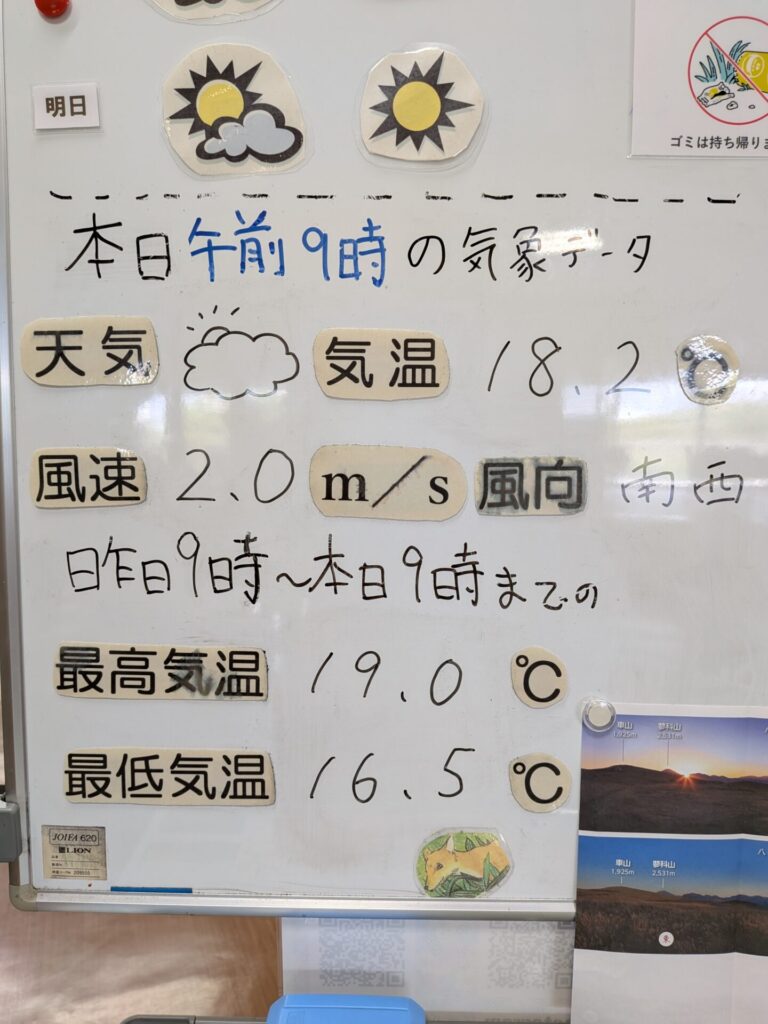 明日
ゴミは持ち帰りま
本日午前9時の気象データ
天気 気温 18.2 ℃
風速 2.0 m/s 風向 南西
昨日9時~本日9時までの
最高気温 19.0 ℃
最低気温 16.5 ℃
車山 蓼科山 八
1,925m 2,531m
車山 蓼科山 八
1,925m 2,531m
JOIFA 620
LION